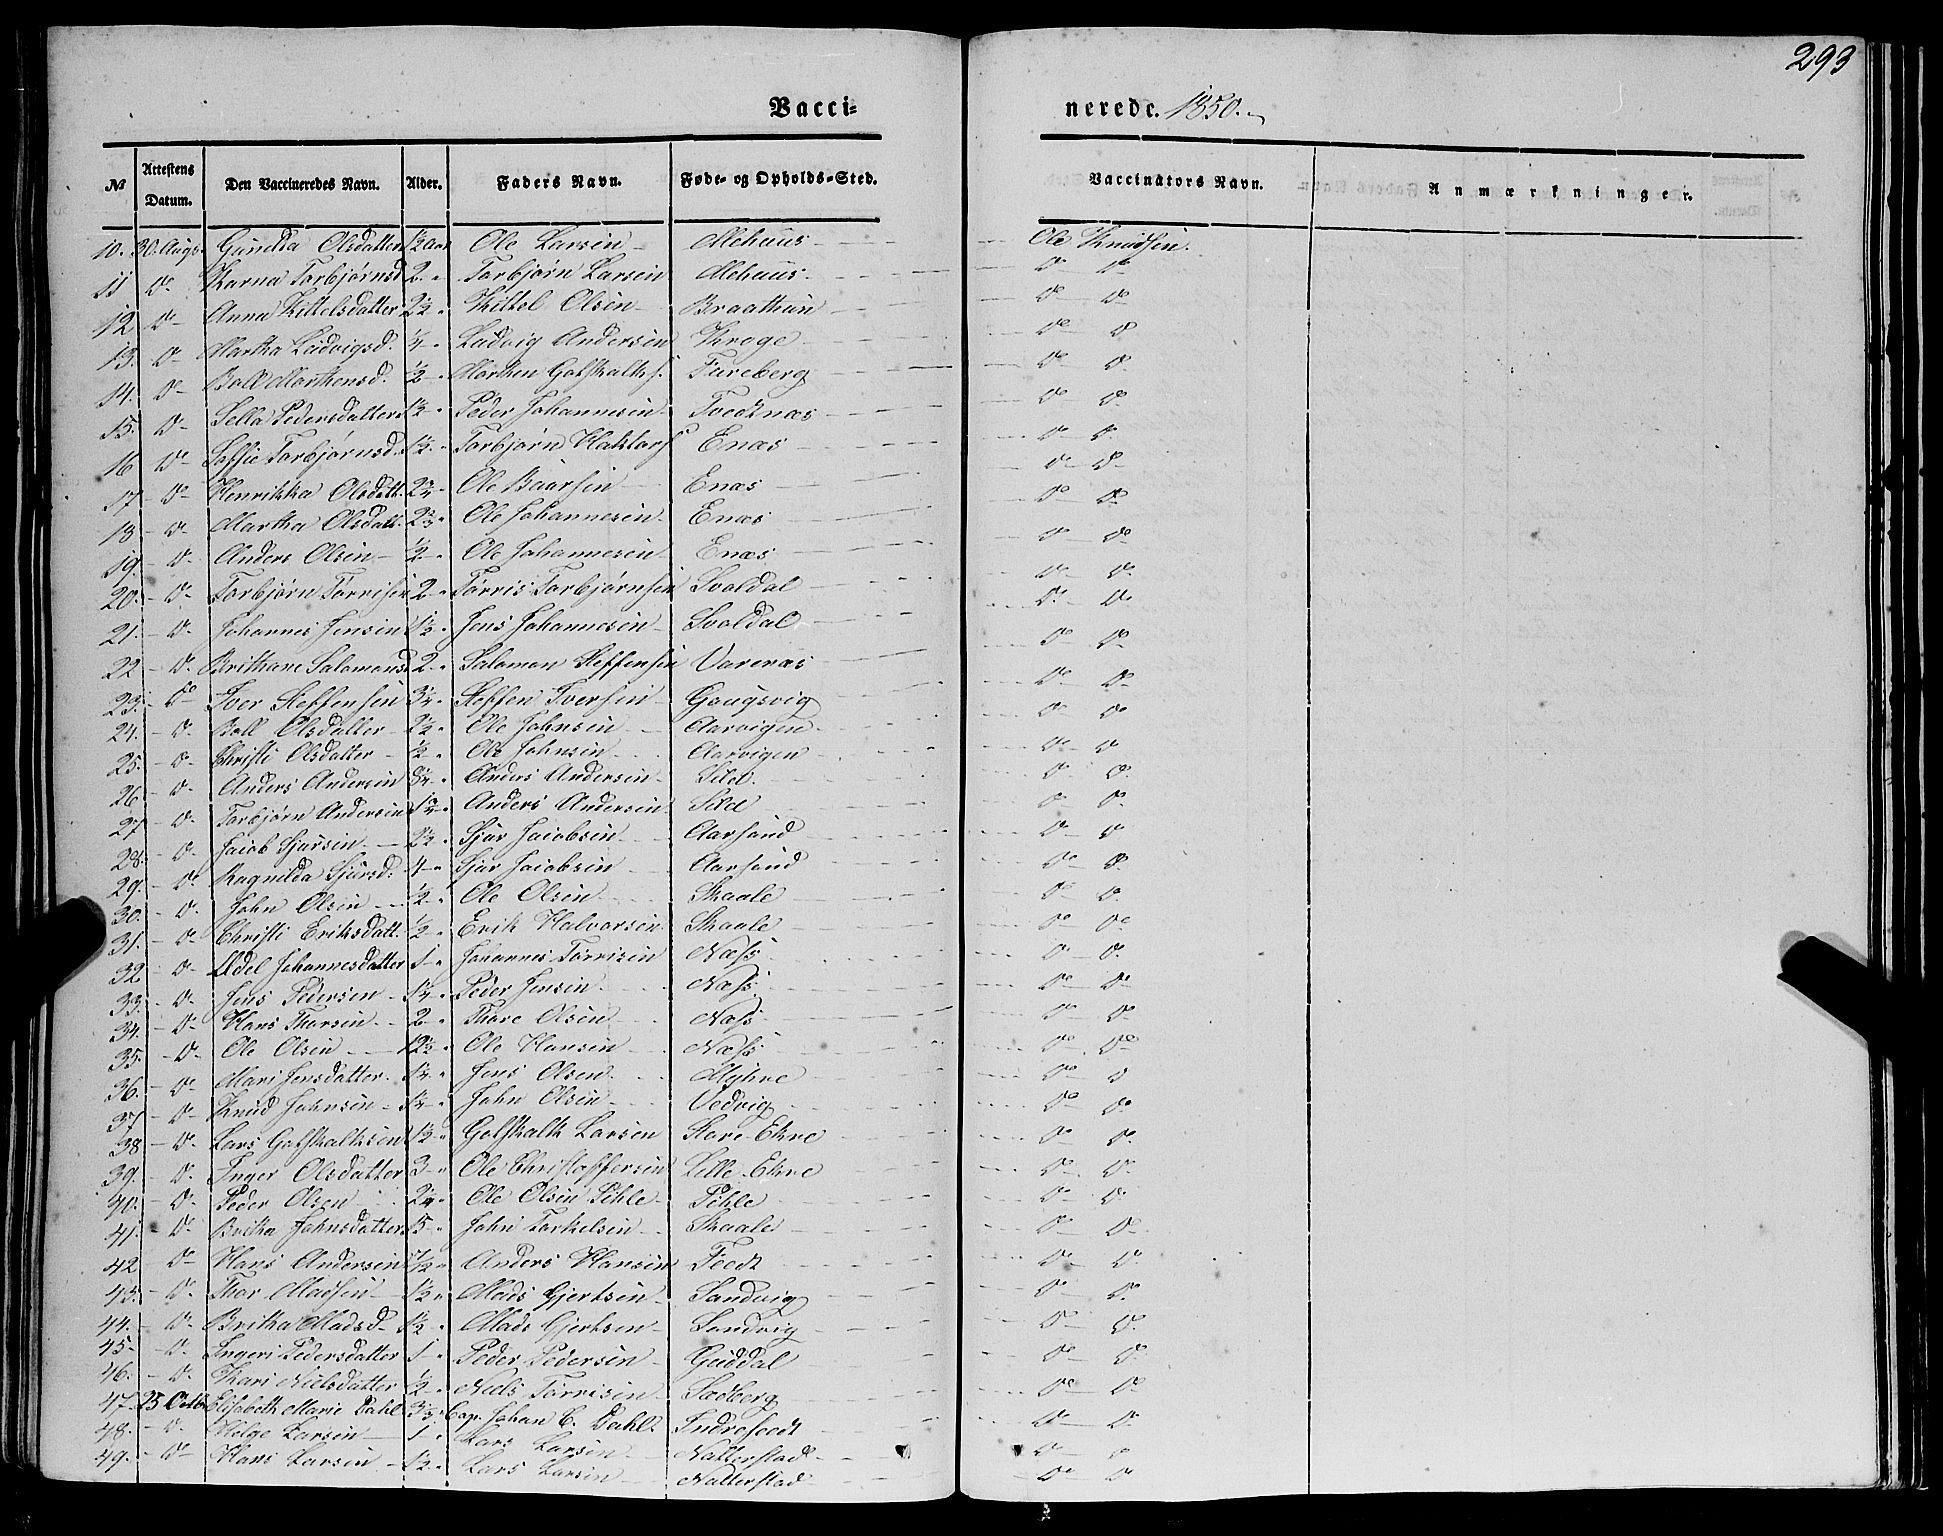 293
Vacci-
nerede. 1850.
№ Attestens Datum. Den Vaccineredes Navn. Alder. Faders Navn. Føde- og Opholds-Sted. Vaccinators Navn. Anmærkninger.
10. 30. Augs. Gunilda Olsdatter 1/3 Aar Ole Larsen Mehuus Ole Knudsen.
11 do Karna Torbjørnsd 2 " Torbjørn Larsen Mehuus do do
12 do Anna Kittelsdatter 2 1/2 " Kittel Olsen Braathun do do
13. do Martha Ludvigsd. 1/4 " Ludvig Andersen Kroge do do
14. do Boll Morthensd. 1/2 " Morthen Gotskalks. Fureberg do do
15. do Sella Pedersdatter 1 1/2 " Peder Johannesen Tvedtnæs do do
16 do Soffie Torbjørnsd. 1 1/2 " Torbjørn Haktors Enæs do do
17 do Henrikka Olsdatt. 2 3/4 " Ole Baarsen Enæs do do
18 do Martha Olsdatt. 2 2/3 " Ole Johannesen Enæs do do
19. do Anders Olsen 1/2 " Ole Johannesen Enæs do do
20. do Torbjørn Tørrisen 2 " Tørris Torbjørnsen Svoldal do do
21. do Johannes Jensen 1 1/2 " Jens Johannesen Svoldal do do
22 do Brithane Salomonsd 2 " Salomon Steffensen Varenæs do do
23. do Iver Steffensen 3/4 " Steffen Iversen Gaugsvig do do
24. do Boll Olsdatter 2 1/2 " Ole Johnsen Aarvigen do do
25. do Christi Olsdatter 1/2 " Ole Johnsen Aarvigen do do
26 do Anders Andersen 3 1/4 " Anders Andersen Sild do do
27 do Torbjørn Andersen 1 3/4 " Anders Andersen Sild do do
28. do Jacob Sjursen 2 1/2 " Sjur Jacobsen Aarsand do do
29. do Ragnilda Sjursd. 4 " Sjur Jacobsen Aarsand do do
30. do John Olsen 1/2 " Ole Olsen Skaale do do
31. do Christi Eriksdatt. 1/2 " Erik Halvorsen Skaale do do
32 do Adel Johannesdatter 1 " Johannes Tørrisen Næss do do
33. do Jens Pedersen 1 1/4 " Peder Jensen Næss do do
34. do Hans Thorsen 2 " Thore Olsen Næss do do
35. do Ole Olsen 12 1/2 " Ole Hansen Næss do do
36. do Mari Jensdatter 1 1/4 " Jens Olsen Myhre do do
37 do Knud Johnsen 1 1/4 " John Olsen Vedvig do do
38 do Lars Gotskalksen 1 1/2 " Gotskalk Larsen Store-Ekre do do
39. do Inger Olsdatter 3 " Ole Christoffersen Lille-Ekre do do
40. do Peder Olsen 2 1/4 " Ole Olsen Pihle Pihle do do
41. do Britha Johnsdatter 5 " John Torkelsen Skaale do do
42 do Hans Andersen 7/12 " Anders Hansen Feedt do do
43. do Thor Madsen 1 1/2 " Mads Gjertsen Sandvig do do
44. do Britha Madsd 1 1/2 " Mads Gjertsen Sandvig do do
45 do Ingeri Pedersdatter 1 " Peder Pedersen Guddal do do
46. do Kari Nielsdatter 1/2 " Niels Tørrisen Sædberg do do
47. 25 Octb. Elisabeth Marie Dahl 3/5 Cap. Johan C. Dahl Indrefeedt do do
48. do Helge Larsen 1 " Lars Larsen Natterstad do do
49. do Hans Larsen 1 1/2 " Lars Larsen Natterstad do do